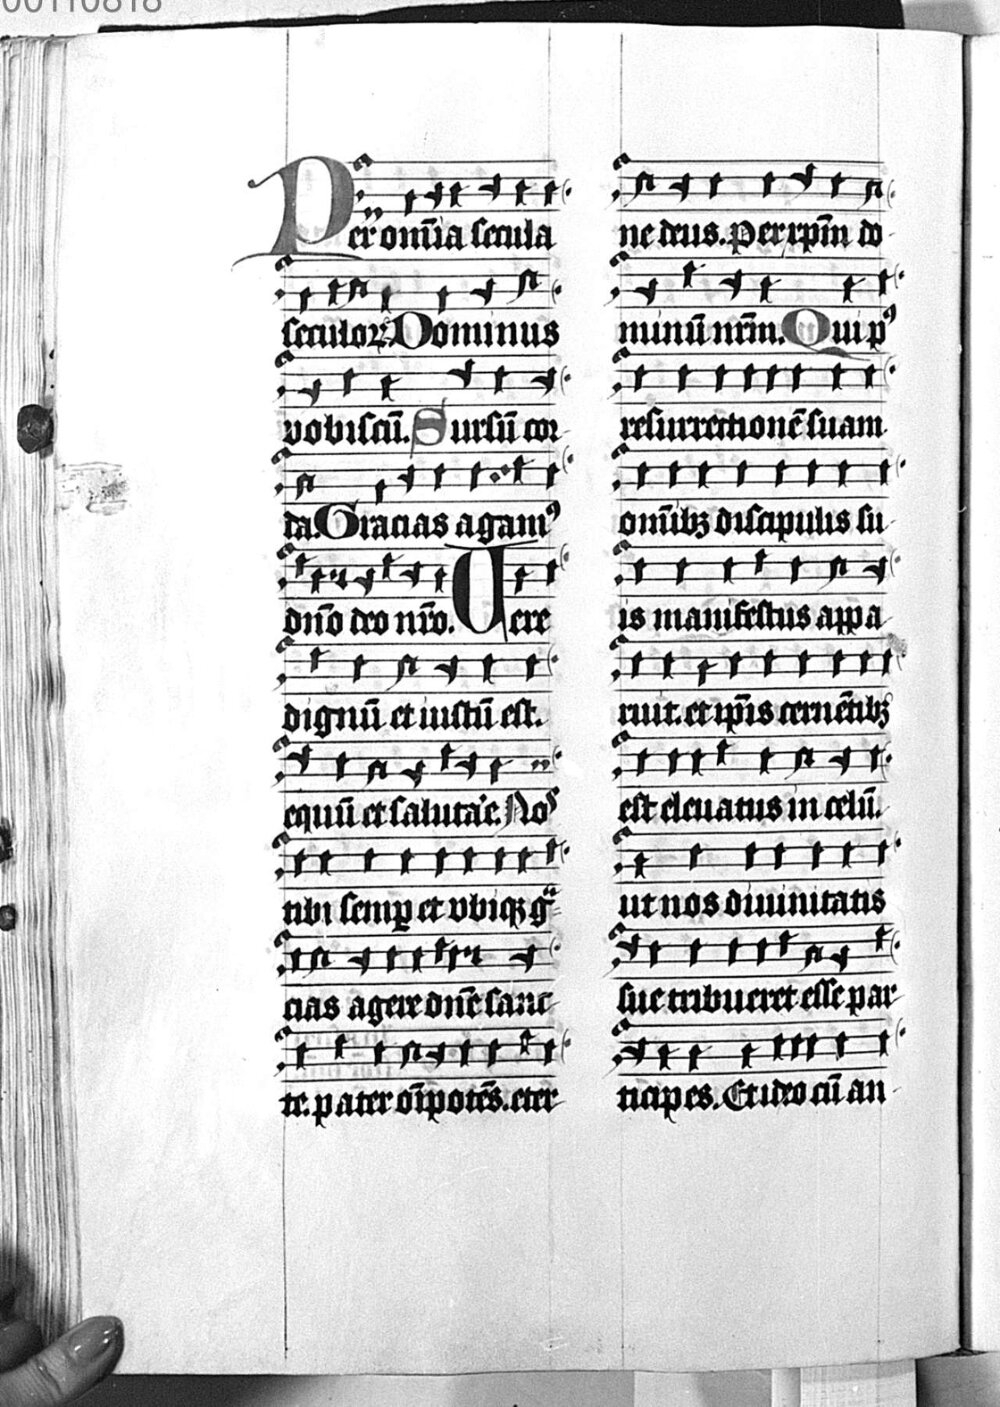 00110818
Per om̄ia secula
seculoꝝ. Dominus
vobiscū. Sursū cor
da. Gracias agamꝰ
dn̄o deo nr̄o. Vere
dignū et iustū est.
equū et salutare. Nos
tibi semꝑ et vbiqꝫ gͣ
cias agere dn̄e sanc
te. pater oīpotēs. eter
ne deus. Per xp̄m do
minū nr̄m. Qui pꝰ
resurrectionē suam
om̄ibꝫ discipulis su
is manifestus appa
ruit. et ip̄is cernētibꝫ
est eleuatus in celū.
ut nos diuinitatis
sue tribueret esse par
ticipes. Et ideo cū an